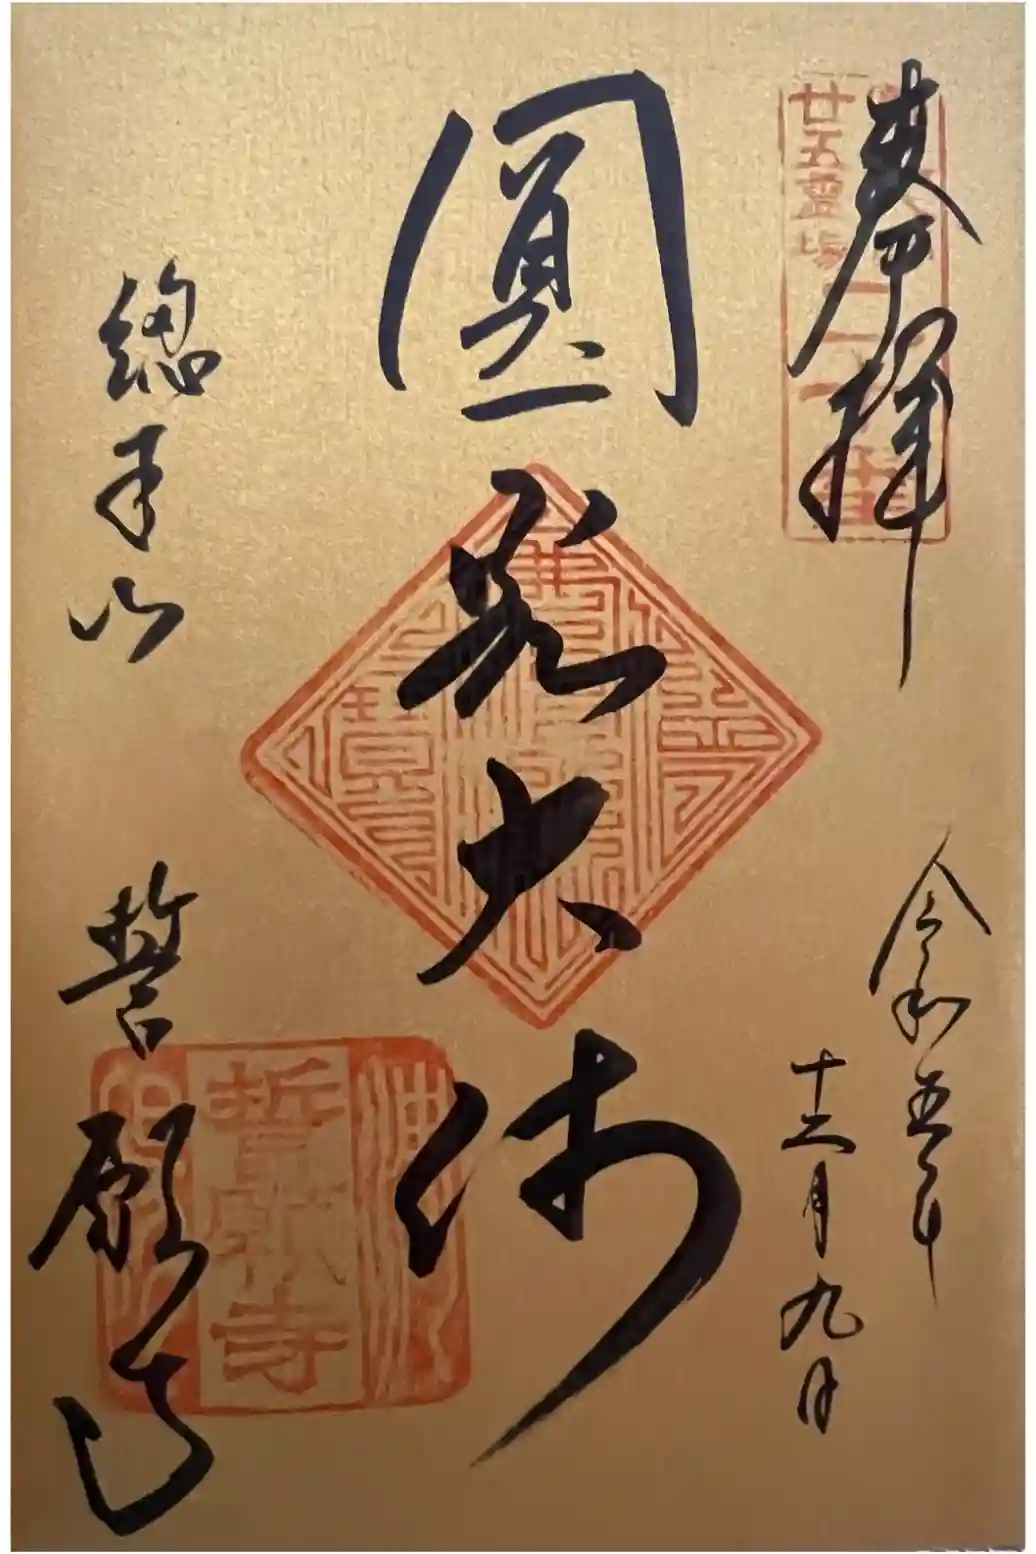 奉拝
廿五霊場
令和五年
十二月九日
圓光大師
總本山
誓願寺
誓願寺